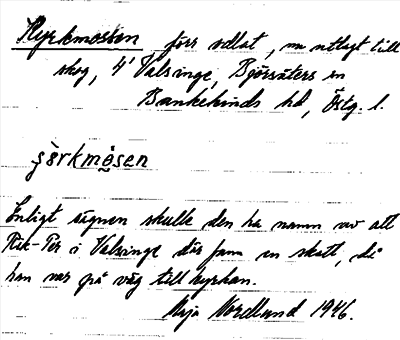 Kyrkmossen förr odlat, nu utlagt till
skog, 4' Valsinge, Björsäters sn
Bankekinds hd, Östg. l.
şö̀rkmósen
Enligt sägnen skulle den ha namn av att
Rik-Per i Valsinge där fann en skatt, då
han var på väg till kyrkan.
Maja Nordlund 1946.